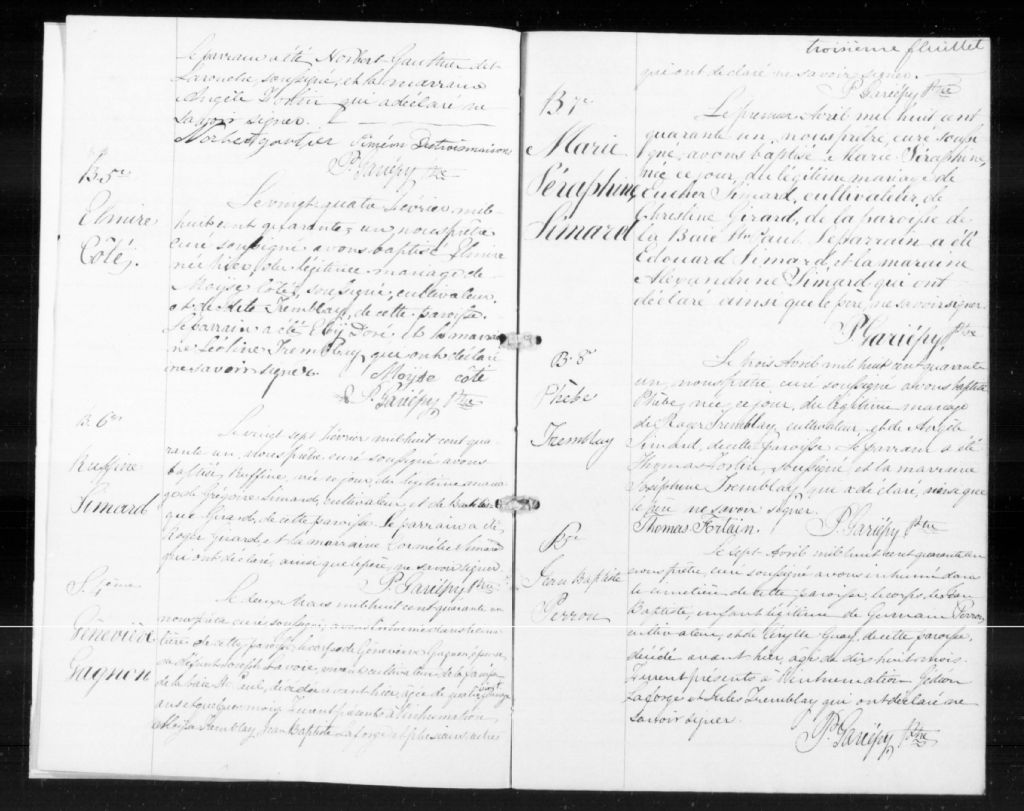 Le parrain a été Norbert Gauthier dit
Larouche, soussigné, et la marraine
Angèle Fortin qui a déclaré ne
savoir signer.
Norbert gautier Siméon Destroismaison
P. Gariépy Ptre
B 5e
Elmire
Côté.
Le vingt quatre Février mil
huit cent quarante un, nous prêtre
curé soussigné avons baptisé Elmire
née hier, du légitime mariage de
Moÿse Côté, soussigné, cultivateur
et de Tremblay, de cette paroisse.
Le parrain a été Eloÿ Doré et la marrai
ne Léoline Tremblay qui ont déclaré
ne savoir signer. Moÿse côté
P. Gariépy Ptre
B 6e
Ruffine
Simard
Le vingt sept Février mil huit cent qua
rante un, nous prêtre curé soussigné avons
baptisé Ruffine, née ce jour du légitime maria
ge de Grégoire Simard, cultivateur et de
que Girard, de cette paroisse. Le parrain a été
Roger Girard et la marraine Simard
qui ont déclaré, ainsi que le père, ne savoir signer.
P. Gariépy Ptre
S. 4ème
Geneviève
Gagnon
Le deux Mars mil huit cent quarante un
nous prêtre curé soussigné, avons inhumé dans le cime
tière de cette paroisse, le corps de Geneviève Gagnon, épouse
de défunt Joseph Savoie, vivant cultivateur de la paroisse
de la baie St Paul, décédée avant hier, âgée de quatre vingt
ans et quelques mois. Furent présents à l'inhumation
Tremblay, Jean Baptiste Laforge et plusieurs autres
troisième feuillet
qui ont déclaré ne savoir signer.
P. Gariépy Ptre
B 7e
Marie
Séraphine
Simard
Le premier Avril mil huit cent
quarante un, nous prêtre, curé soussi
gné, avons baptisé Marie Séraphine,
née ce jour, du légitime mariage de
Eucher Simard, cultivateur, de
Christine Girard, de la paroisse de
la Baie St Paul. Le parrain a été
Edouard Simard, et la maraine
Alexandrine Simard qui ont
déclaré ainsi que le père, ne savoir signer.
P. Gariépy, Ptre
B. 8e
Phèbe
Tremblay
Le trois Avril mil huit cent quarante
un, nous prêtre, curé soussigné avons baptisé
Phèbe, née ce jour, du légitime mariage
de Roger Tremblay, cultivateur, et de Angèle
Simard, de cette paroisse. Le parrain a été
Thomas Fortin, soussigné et la marraine
Joséphine Tremblay qui a déclaré, ainsi que
le père ne savoir signer.
Thomas Fortain. P. Gariépy Ptre
Jean Baptiste
Perron
Le sept Avril mil huit cent quarante un
nous prêtre, curé soussigné avons inhumé dans
le cimetière de cette paroisse, le corps de Jean
Baptiste, enfant légitime de Germain Perron,
cultivateur, et de Guay, de cette paroisse,
décédé avant hier, âgé de dix huit mois.
Furent présents à l'inhumation Gédéon
Laforge et Jules Tremblay qui ont déclaré ne
savoir signer.
P. Gariépy Ptre